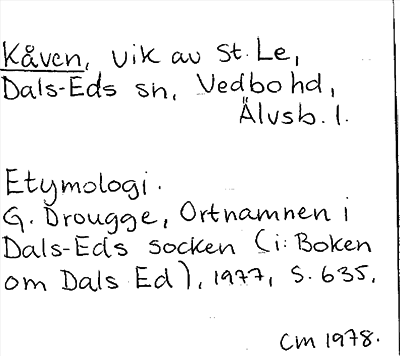 Kåven, vik av St. Le,
Dals-Eds sn, Vedbo hd,
Älvsb. l.
Etymologi.
G. Drougge, Ortnamnen i
Dals-Eds socken (i: Boken
om Dals Ed), 1977, s. 635.
CM 1978.